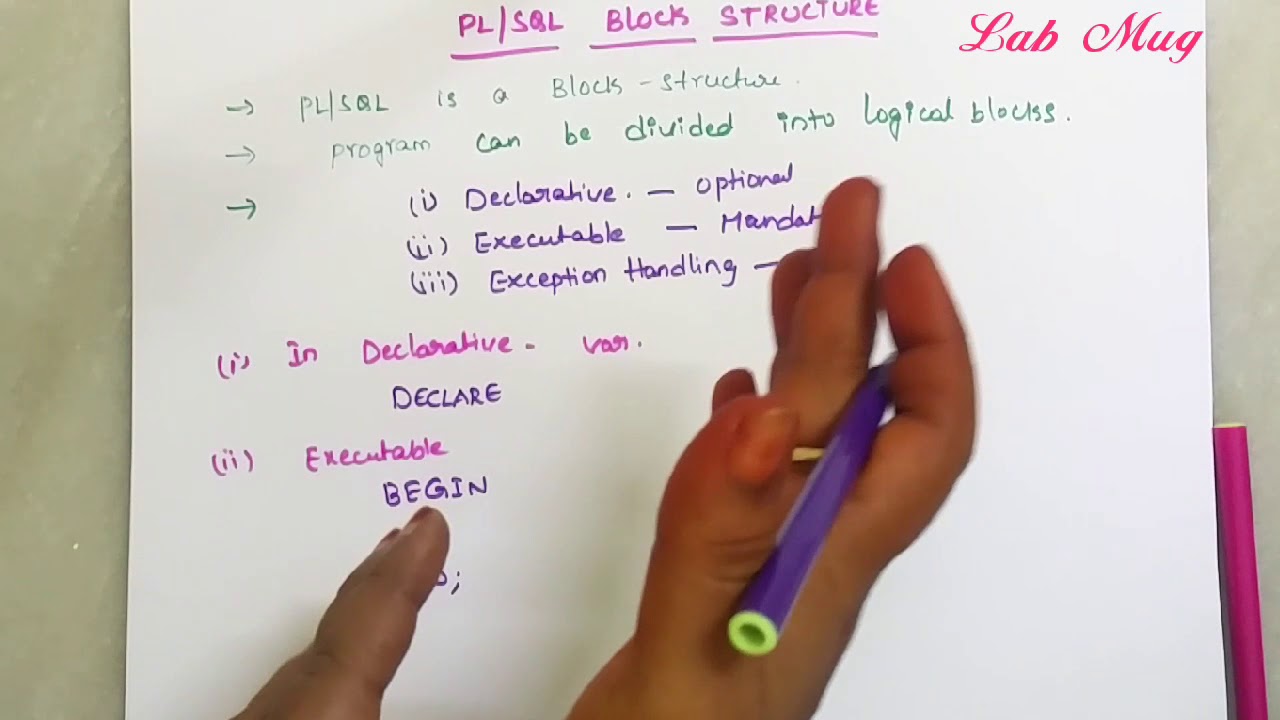 PL/SQL BLOCK STRUCTURE
Lab Mug
→ PL/SQL is a Block-structure.
→ program can be divided into logical blockss.
→ (i) Declarative. — optional
(ii) Executable — Mandat
(iii) Exception Handling —
(i) In Declarative - var.
DECLARE
(ii) Executable
BEGIN
;